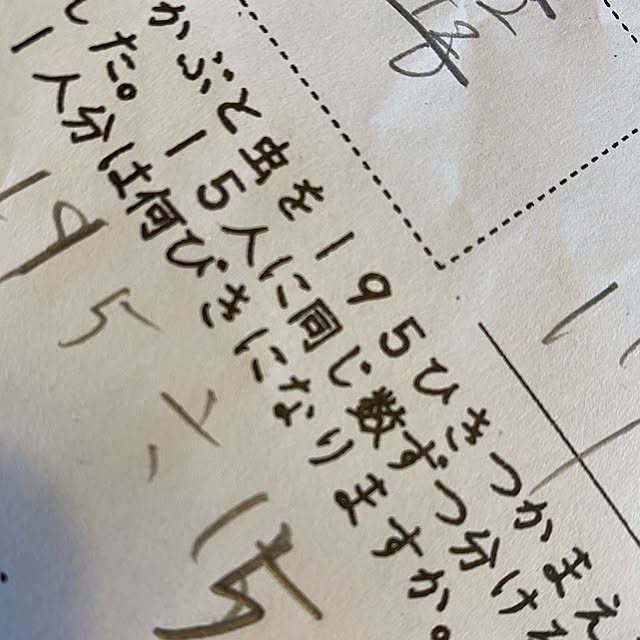 かぶと虫を195ひきつかまえ
した。15人に同じ数ずつ分ける
1人分は何びきになりますか。
195÷15